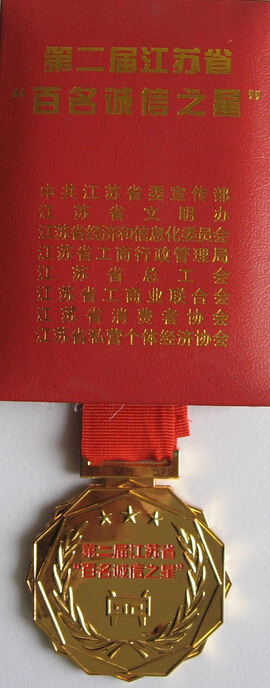 第二届江苏省
“百名诚信之星”
中共江苏省委宣传部
江苏省文明办
江苏省经济和信息化委员会
江苏省工商行政管理局
江苏省总工会
江苏省工商业联合会
江苏省消费者协会
江苏省私营个体经济协会
第二届江苏省
“百名诚信之星”